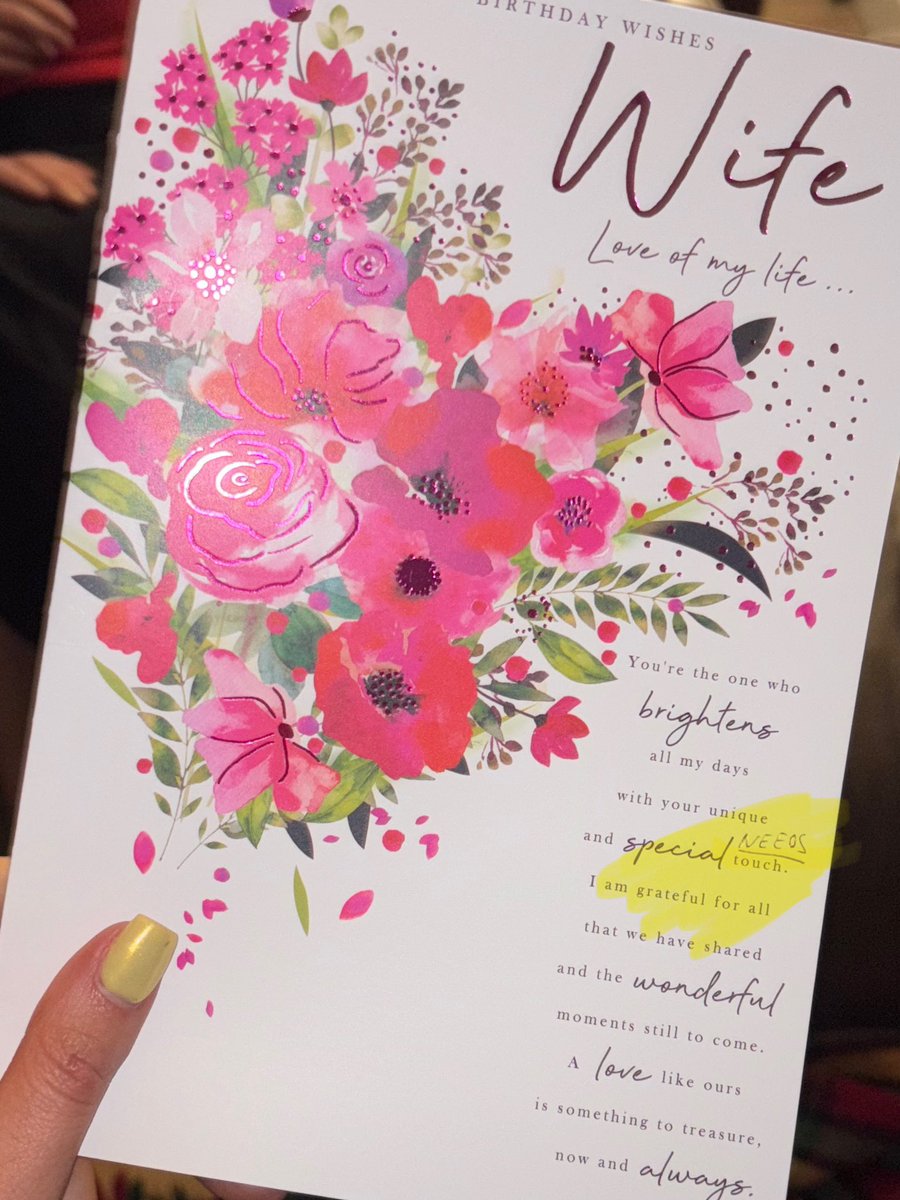 BIRTHDAY WISHES
Wife
Love of my life ...
You're the one who
brightens
all my days
with your unique
NEEDS
and special touch.
I am grateful for all
that we have shared
and the wonderful
moments still to come.
A love like ours
is something to treasure,
now and always.